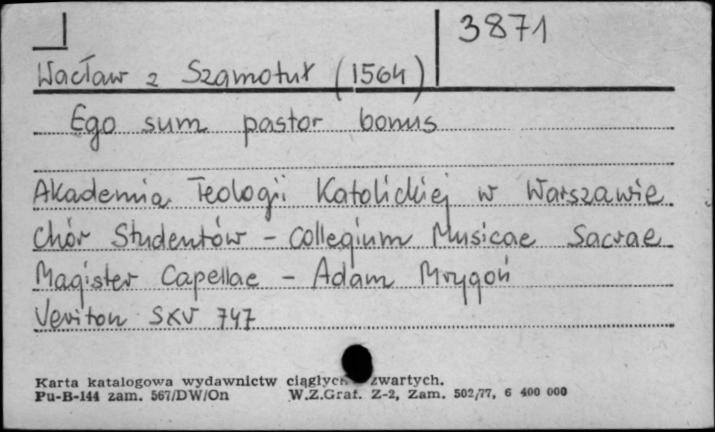 3871
Wacław z Szamotuł (1564)
Ego sum pastor bonus
Akademia Teologii Katolickiej w Warszawie
Chór Studentów - Collegium Musicae Sacrae
Magister Capellae - Adam Mrygoń
Veriton SXV 747
Karta katalogowa wydawnictw ciągłych zwartych.
Pu-B-144 zam. 567/DW/On W.Z.Graf. Z-2, Zam. 502/77, 6 400 000